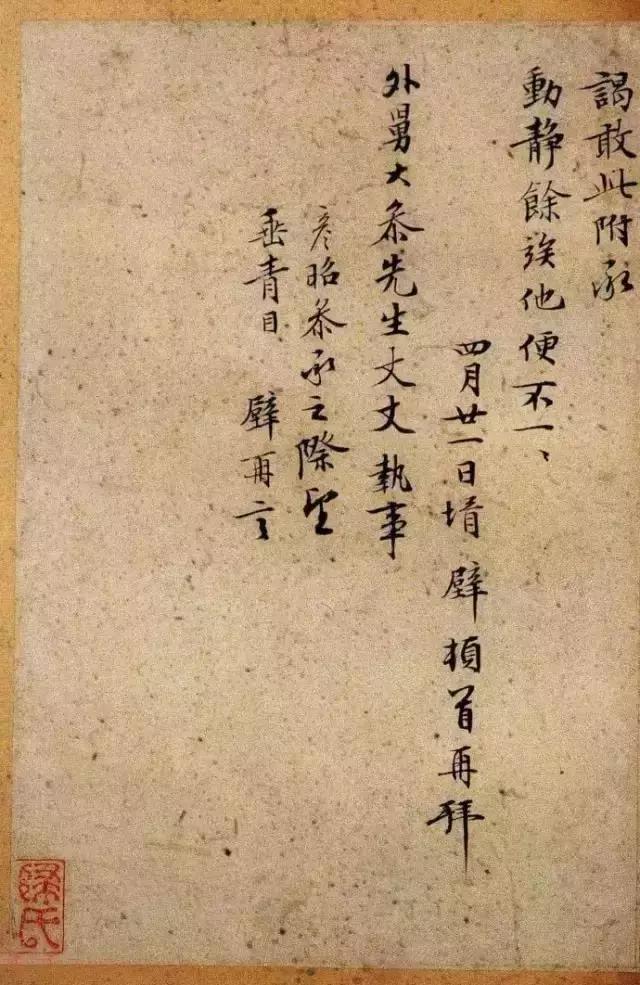 謁敢此附承
動静餘族他便不一、
四月廿一日壻 璧 頓首再拜
外舅大叅先生丈丈執事
彦昭叅承之際望
垂青目 璧再言